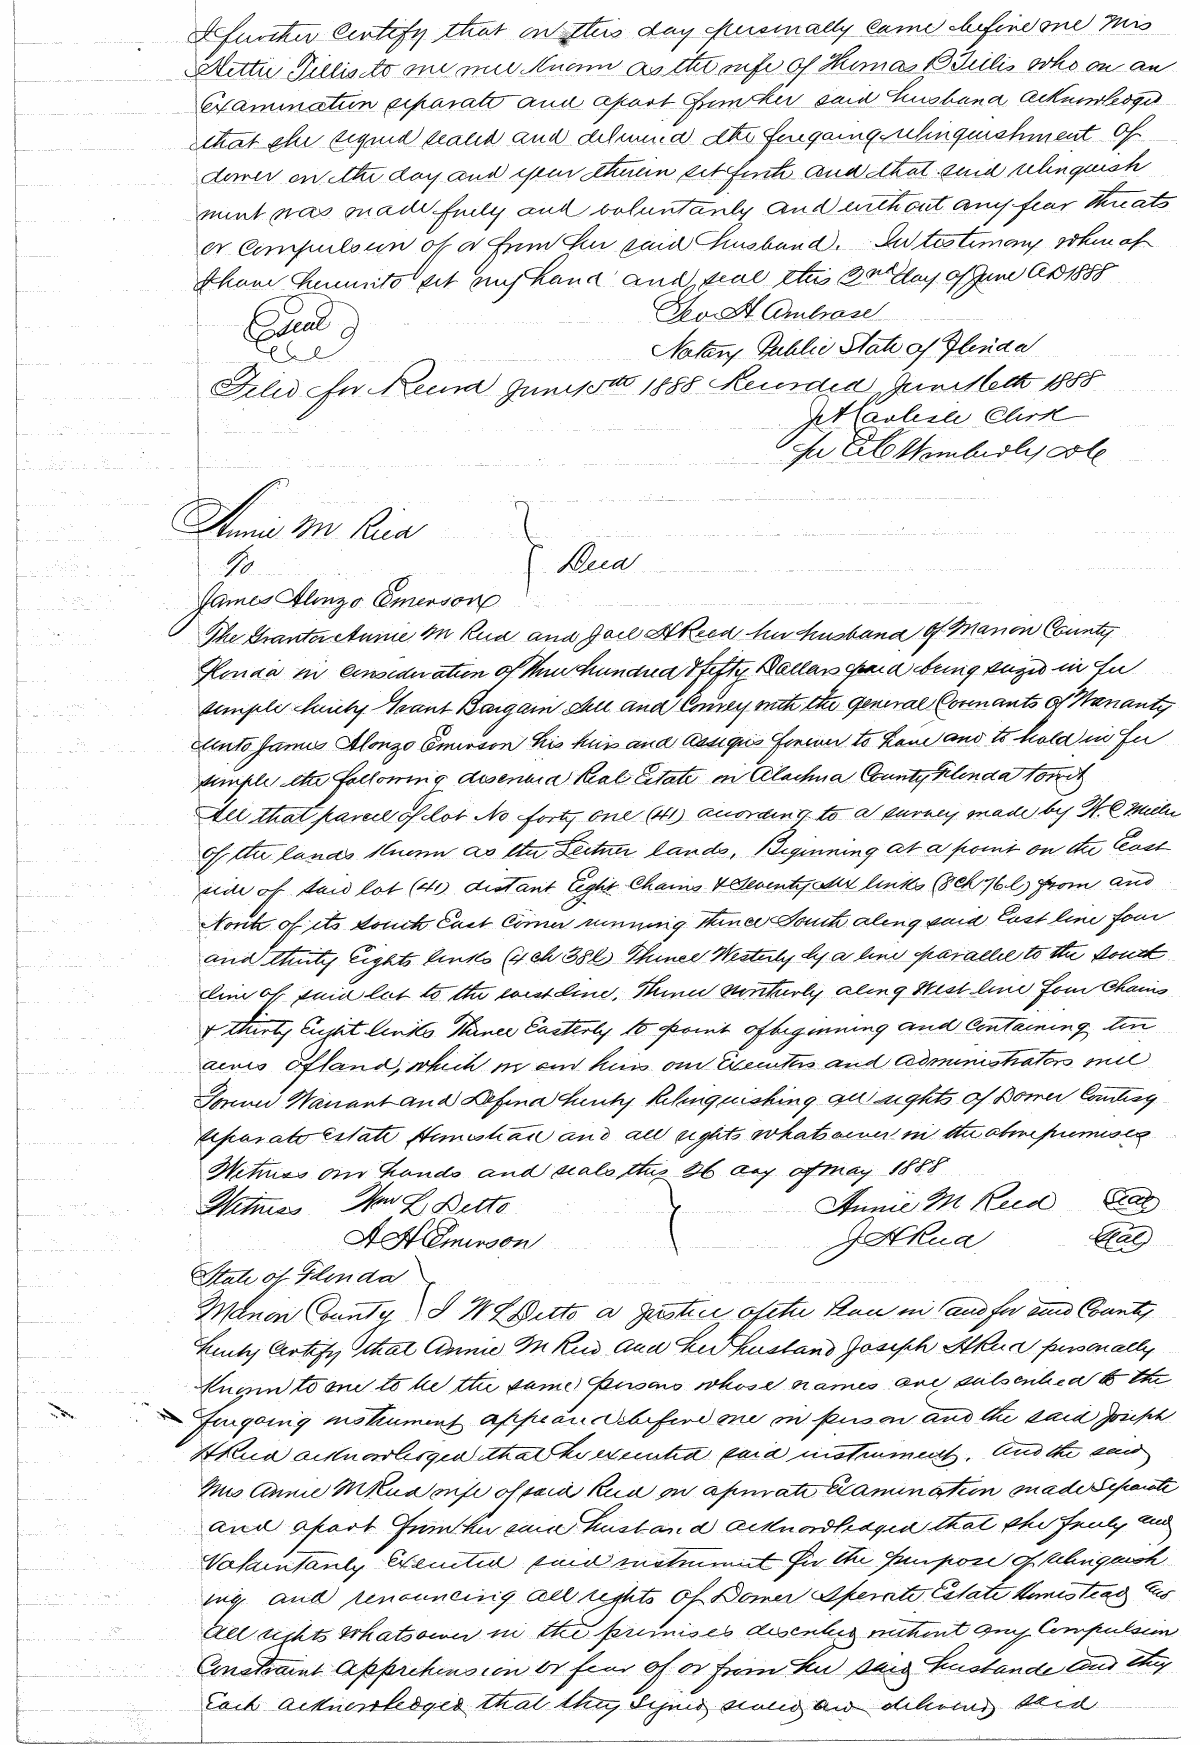 I further Certify that on this day personally came before me Mrs
Hettie Tillis to me well Known as the wife of Thomas B Tillis who on an
Examination separate and apart from her said husband acknowledged
that she signed sealed and delivered the foregoing relinquishment of
dower on the day and year therein set forth and that said relinquish
ment was made freely and voluntarily and without any fear threats
or Compulsion of or from her said husband. In testimony whereof
I have hereunto set my hand and seal this 2nd day of June AD 1888
Geo H Ambrose
Seal
Notary Public State of Florida
Filed for Record June 15th 1888 Recorded June 16th 1888
J A Carlisle Clerk
per Wimberly DC
Annie M Reed
To
Deed
James Alonzo Emerson
The Grantor Annie M Reed and Joel A Reed her husband of Marion County
Florida in Consideration of Three hundred & fifty Dollars paid being seized in fee
simple hereby Grant Bargain Sell and Convey with the general Covenants of Warranty
Unto James Alonzo Emerson his heirs and Assigns forever to have and to hold in fee
simple the following described Real Estate in Alachua County Florida towit
All that parcel of lot No forty one (41) according to a survey made by H. C Miller
of the lands Known as the Leitner lands. Beginning at a point on the East
side of said lot (41) distant Eight Chains & Seventy Six links (8 Ch 76 l) from and
North of its South East Corner running Thence South along said East line four
and thirty Eights links (4 ch 38 l) Thence Westerly by a line parallel to the South
line of said lot to the west line. Thence northerly along West line four Chains
& thirty Eight links Thence Easterly to point of beginning and Containing ten
acres of land, which we our heirs our Executors and administrators will
Forever Warrant and Defend hereby Relinquishing all rights of Dower Courtesy
separate Estate Homestead and all rights whatsoever in the above premises
Witness our hands and seals this 26 day of May 1888
Witness Wm L Ditto Annie M Reed Seal
A H Emerson J A Reed Seal
State of Florida
Marion County I W L Ditto a Justice of the Peace in and for said County
hereby Certify that Annie M Reed and her husband Joseph A Reed personally
Known to me to be the same persons whose names are subscribed to the
foregoing instrument appeared before me in person and the said Joseph
A Reed acknowledged that he executed said instrument. And the said
Mrs Annie M Reed wife of said Reed on a private Examination made Separate
and apart from her said husband acknowledged that she freely and
Voluntarily Executed said instrument for the purpose of relinquish
ing and renouncing all rights of Dower Seperate Estate Homestead and
all rights whatsoever in the premises described without any Compulsion
Constraint Apprehension or fear of or from her said husbande and they
Each acknowledged that they signed sealed and delivered said